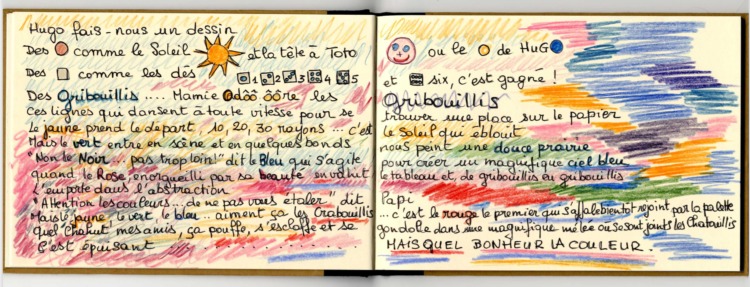 Hugo fais-nous un dessin
Des comme le Soleil et la tête à Toto
Des comme les dés 1 2 3 4 5
Des Gribouillis .... Mamie adôô ôôre les
Ces lignes qui dansent à toute vitesse pour se
le jaune prend le départ 10, 20, 30 rayons ... c'est
Mais le vert entre en scène et en quelques bonds
"Non le Noir ... pas trop loin!" dit le Bleu qui s'agite
quand, le Rose, enorgueilli par sa beauté envahit
L'emporte dans l'abstraction.
"Attention les couleurs... de ne pas vous étaler" dit
Mais le jaune, le vert, le bleu.. aiment ça les Crabouillis
quel Chahut mes amis, ça pouffe, s'esclaffe et se
C'est épuisant ..........
ou le de HuG
et six, c'est gagné !
Gribouillis
trouver une place sur le papier
le Soleil qui éblouit
nous peint une douce prairie
pour créer un magnifique ciel bleu
le tableau et, de gribouillis en gribouillis
Papi
... c'est le rouge le premier qui s'affale bientot rejoint par la palette
gondole dans une magnifique mêlée ou se sont joints les Chatouillis
MAIS QUEL BONHEUR LA COULEUR.